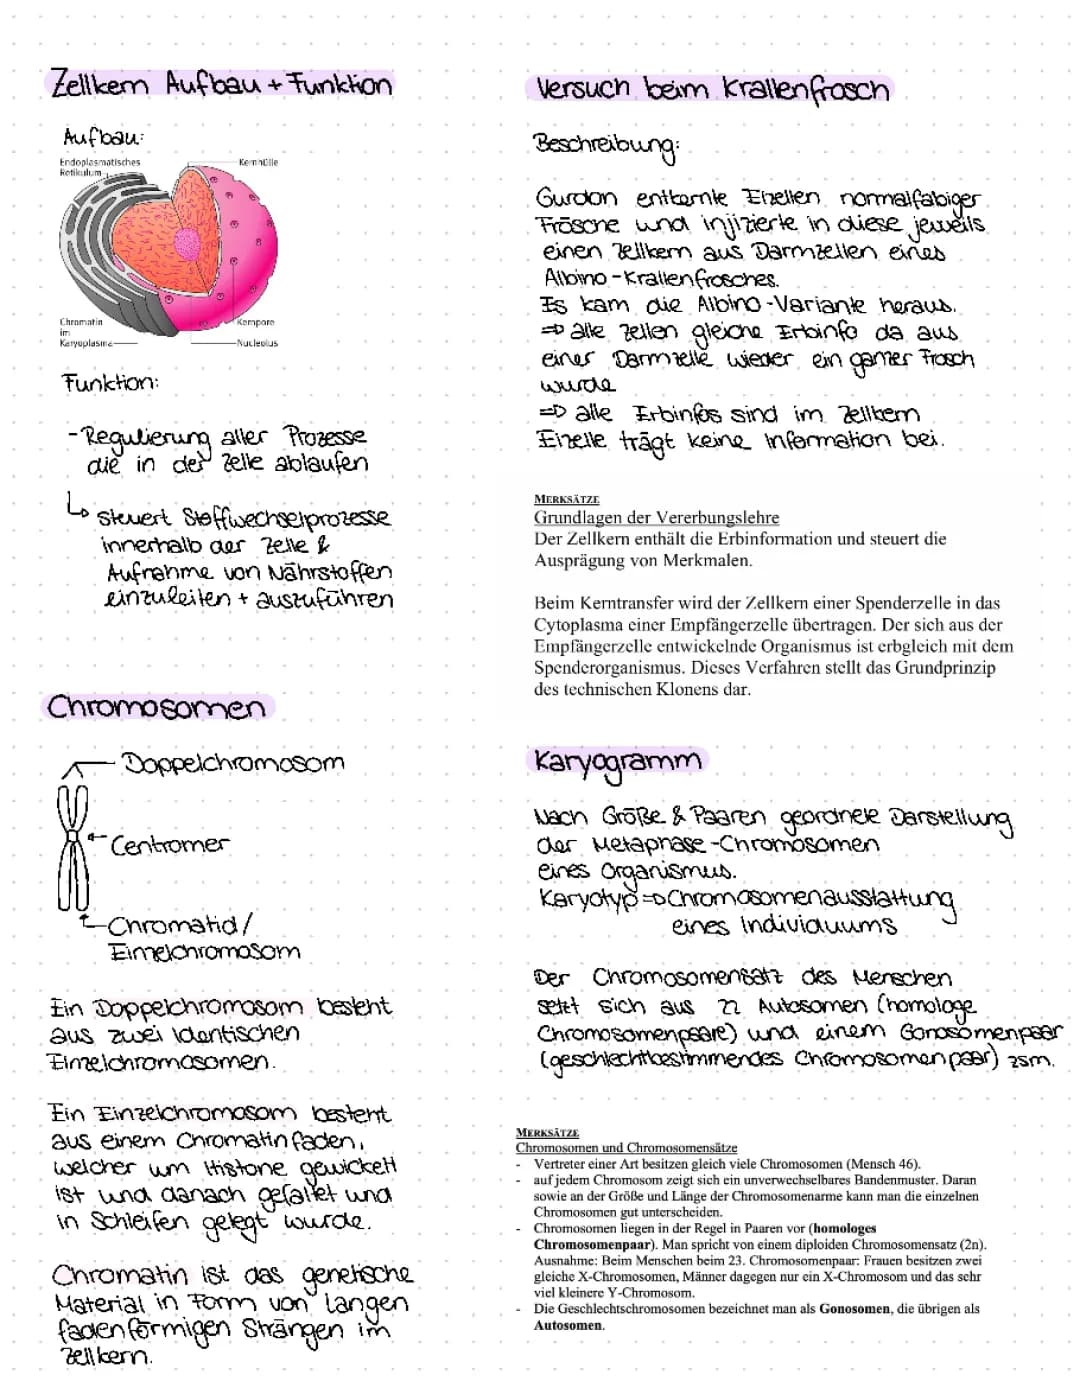 Zellkern Aufbau + Funktion
Aufbau:
Endoplasmatisches
Retikulum
Kernhülle
Chromatin
im
Karyoplasma
Kernpore
Nucleolus
Funktion:
- Regulierung aller Prozesse
die in der Zelle ablaufen
↳ steuert Stoffwechselprozesse
innerhalb der Zelle &
Aufnahme von Nährstoffen
einzuleiten + auszuführen
Chromosomen
Doppelchromosom
Centromer
Chromatid/
Einzelchromosom
Ein Doppelchromosom besteht
aus zwei identischen
Einzelchromosomen.
Ein Einzelchromosom besteht
aus einem Chromatinfaden,
welcher um Histone gewickelt
ist und danach gefaltet und
in Schleifen gelegt wurde.
Chromatin ist das genetische
Material in Form von langen
fadenförmigen Strängen im
Zellkern.
Versuch beim Krallenfrosch
Beschreibung:
Gurdon entkernte Eizellen normalfabiger
Frösche und injizierte in diese jeweils
einen Zellkern aus Darmzellen eines
Albino-Krallenfrosches.
Es kam die Albino-Variante heraus.
=> alle Zellen gleiche Erbinfo da aus
einer Darmzelle wieder ein ganzer Frosch
wurde
=> alle Erbinfos sind im Zellkern
Eizelle trägt keine Information bei.
MERKSÄTZE
Grundlagen der Vererbungslehre
Der Zellkern enthält die Erbinformation und steuert die
Ausprägung von Merkmalen.
Beim Kerntransfer wird der Zellkern einer Spenderzelle in das
Cytoplasma einer Empfängerzelle übertragen. Der sich aus der
Empfängerzelle entwickelnde Organismus ist erbgleich mit dem
Spenderorganismus. Dieses Verfahren stellt das Grundprinzip
des technischen Klonens dar.
Karyogramm
Nach Größe & Paaren geordnete Darstellung
der Metaphase-Chromosomen
eines Organismus.
Karyotyp => Chromosomenausstattung
eines Individuums
Der Chromosomensatz des Menschen
setzt sich aus 22 Autosomen (homologe
Chromosomenpaare) und einem Gonosomenpaar
(geschlechtbestimmendes Chromosomenpaar) zsm.
MERKSÄTZE
Chromosomen und Chromosomensätze
- Vertreter einer Art besitzen gleich viele Chromosomen (Mensch 46).
- auf jedem Chromosom zeigt sich ein unverwechselbares Bandenmuster. Daran
sowie an der Größe und Länge der Chromosomenarme kann man die einzelnen
Chromosomen gut unterscheiden.
- Chromosomen liegen in der Regel in Paaren vor (homologes
Chromosomenpaar). Man spricht von einem diploiden Chromosomensatz (2n).
Ausnahme: Beim Menschen beim 23. Chromosomenpaar: Frauen besitzen zwei
gleiche X-Chromosomen, Männer dagegen nur ein X-Chromosom und das sehr
viel kleinere Y-Chromosom.
- Die Geschlechtschromosomen bezeichnet man als Gonosomen, die übrigen als
Autosomen.